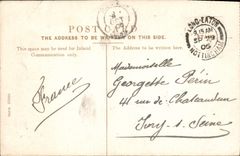 POST
THE ADDRESS TO BE WRITTEN ON THIS SIDE.
This space may be used for Inland
Communication only.
The Address to be written here.
LONG-EATON
NOTTINGHAM
05
France
Mademoiselle
Georgette Périn
41 rue de Chateaudun
Ivry s/ Seine